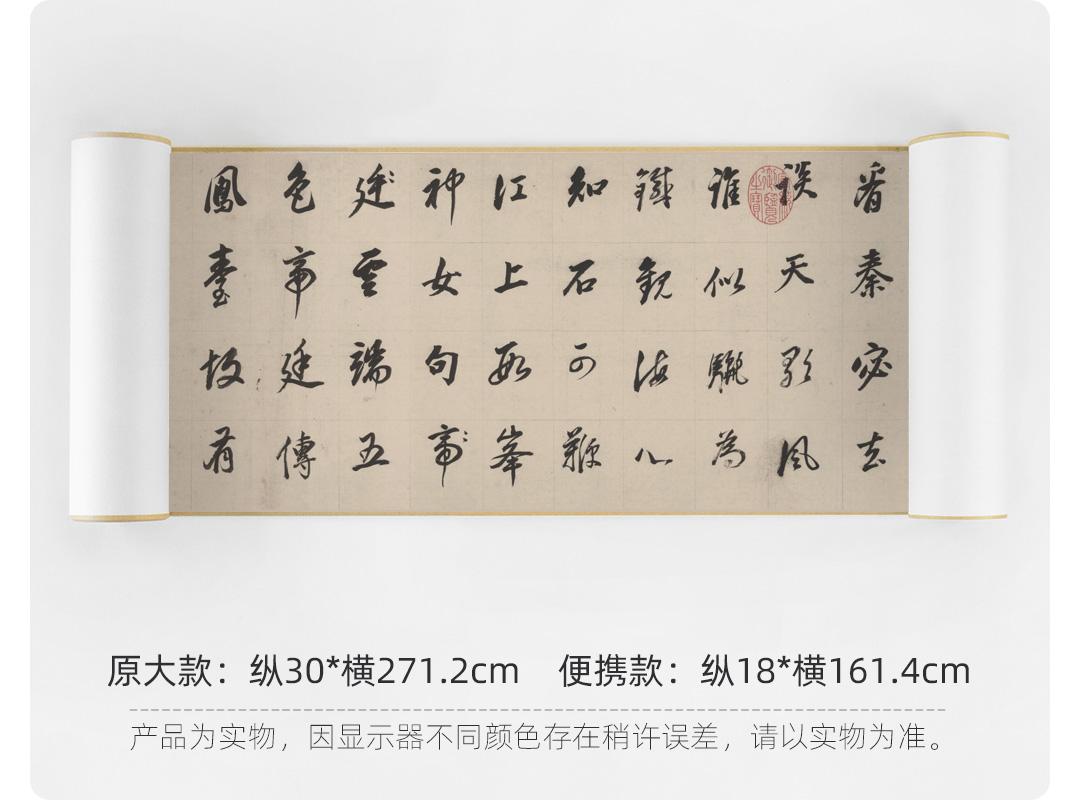 看秦宓去
談天 風
誰似驪為
鐵觀海心
知石可鞭
江上數峯
神女句帝
廷雲端五
色帝廷傳
鳳臺故有
原大款：纵30*横271.2cm 便携款：纵18*横161.4cm
产品为实物，因显示器不同颜色存在稍许误差，请以实物为准。